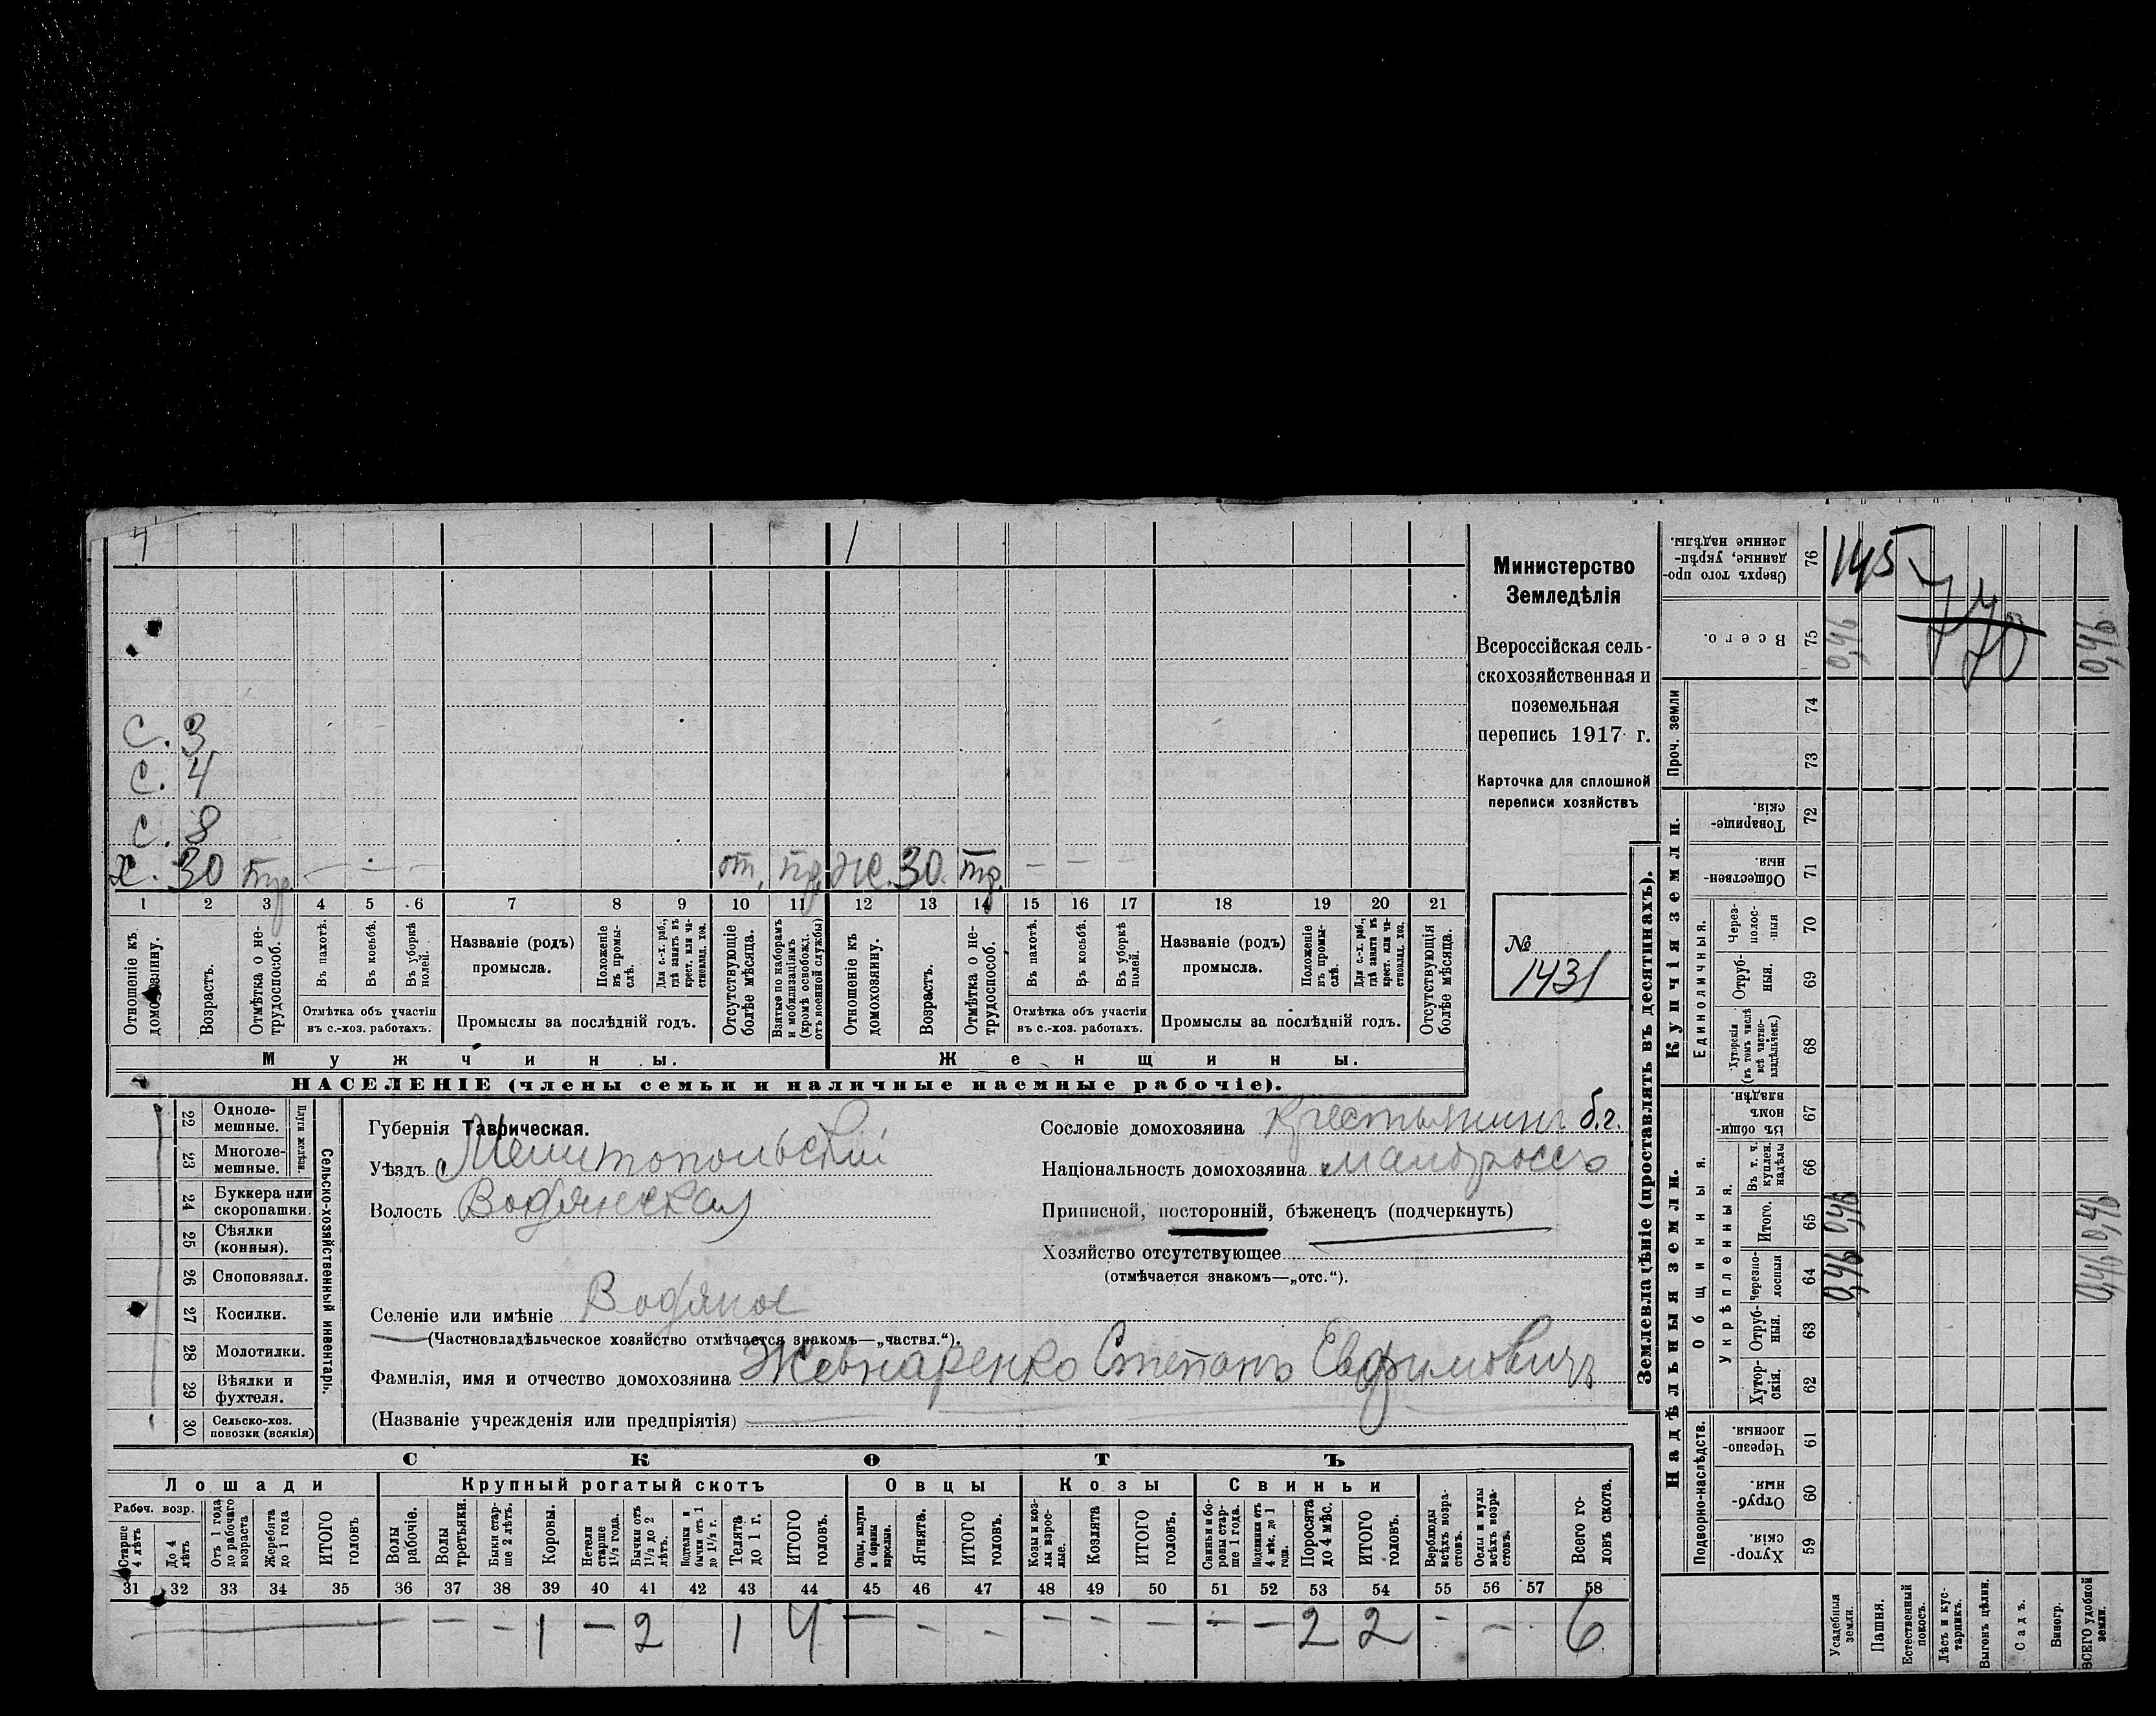 4
1
С. 3
С. 4
С. 8
х. 30 тр. — — — от. тр. Ж. 30. тр. — —
1 2 3 4 5 6 7 8 9 10 11 12 13 14 15 16 17 18 19 20 21
Отношеніе къ домохозяину.
Возрастъ.
Отмѣтка о нетрудоспособ.
Въ пахотѣ.
Въ косьбѣ.
Въ уборкѣ полей.
Отмѣтка объ участіи
въ с.-хоз. работахъ.
Названіе (родъ)
промысла.
Положеніе въ промыслѣ.
Для с.-х. раб., гдѣ занятъ въ крест. или частновлад. хоз.
Промыслы за послѣдній годъ.
Отсутствующіе болѣе мѣсяца.
Взятые по наборамъ и мобилизаціямъ (кромѣ освобожд. отъ военной службы)
Отношеніе къ домохозяину.
Возрастъ.
Отмѣтка о нетрудоспособ.
Въ пахотѣ.
Въ косьбѣ.
Въ уборкѣ полей.
Отмѣтка объ участіи
въ с.-хоз. работахъ.
Названіе (родъ)
промысла.
Положеніе въ промыслѣ.
Для с.-х. раб., гдѣ занята въ крест. или частновлад. хоз.
Промыслы за послѣдній годъ.
Отсутствующія болѣе мѣсяца.
Мужчины.
Женщины.
НАСЕЛЕНІЕ (члены семьи и наличные наемные рабочіе).
Министерство
Земледѣлія
Всероссійская сель-
скохозяйственная и
поземельная
перепись 1917 г.
Карточка для сплошной
переписи хозяйствъ
№
1431
22 Одноле-
мешные.
23 Многоле-
мешные.
Плуги желѣзн.
24 Буккера или
скоропашки.
25 Сѣялки
(конныя).
26 Сноповязал.
27 Косилки.
28 Молотилки.
29 Вѣялки и
фухтеля.
30 Сельско-хоз.
повозки (всякія)
Сельско-хозяйственный инвентарь.
Губернія Таврическая.
Уѣздъ Мелитопольскій
Волость Водянская
Селеніе или имѣніе Водяное
(Частновладѣльческое хозяйство отмѣчается знакомъ—„частвл.“).
Фамилія, имя и отчество домохозяина Жевнаренко Степанъ Евфимовичъ
(Названіе учрежденія или предпріятія)
Сословіе домохозяина крестьянинъ б.г.
Національность домохозяина малороссъ
Приписной, посторонній, бѣженецъ (подчеркнуть)
Хозяйство отсутствующее
(отмѣчается знакомъ—„отс.“).
СКОТЪ
Лошади
Крупный рогатый скотъ
Овцы
Козы
Свиньи
Рабоч. возр.
Старше 4 лѣтъ
До 4 лѣтъ
Отъ 1 года до рабочаго возраста
Жеребята до 1 года
ИТОГО головъ
Волы рабочіе.
Волы третьяки.
Быки старше 2 лѣтъ.
Коровы.
Нетели старше 1½ года.
Бычки отъ 1½ до 2 лѣтъ.
Подтелки и бычки отъ 1 до 1½ г.
Телята до 1 г.
ИТОГО головъ.
Овцы, валухи и бараны взрослые.
Ягнята.
ИТОГО головъ.
Козы и козлы взрослые.
Козлята
ИТОГО головъ.
Свиньи и боровы старше 1 года.
Подсвинки отъ 4 мѣс. до 1 года.
Поросята до 4 мѣс.
ИТОГО головъ.
Верблюды всѣхъ возрастовъ.
Ослы и мулы всѣхъ возрастовъ.
Всего головъ скота.
31 32 33 34 35 36 37 38 39 40 41 42 43 44 45 46 47 48 49 50 51 52 53 54 55 56 57 58
— — 1 — 2 1 4 — — — — — — — — 2 2 — — 6
Землевладѣніе (проставлять въ десятинахъ).
Надѣльныя земли.
Купчія земли.
Проч. земли
Подворно-наслѣдств.
Общинныя.
Укрѣпленныя.
Единоличныя.
76 Сверхъ того проданные, укрѣпленные надѣлы.
75 Всего.
74
73
72 Товарищескія.
71 Общественныя.
70 Черезполосныя
69 Отрубныя.
68 Хуторскія (въ томъ числѣ всѣ частновладѣльческ.)
67 Въ общинномъ владѣн.
66 Въ т. ч. куплен. надѣлы
65 Итого.
64 Черезполосныя
63 Отрубныя.
62 Хуторскія.
61 Черезполосныя.
60 Отрубныя.
59 Хуторскія.
145
770
0,46 0,46
0,46 0,46
0,46 0,46
Усадебныя земли.
Пашня.
Естественный покосъ.
Лѣсъ и кустарникъ.
Выгонъ цѣлин.
Садъ.
Виногр.
ВСЕГО удобной земли.